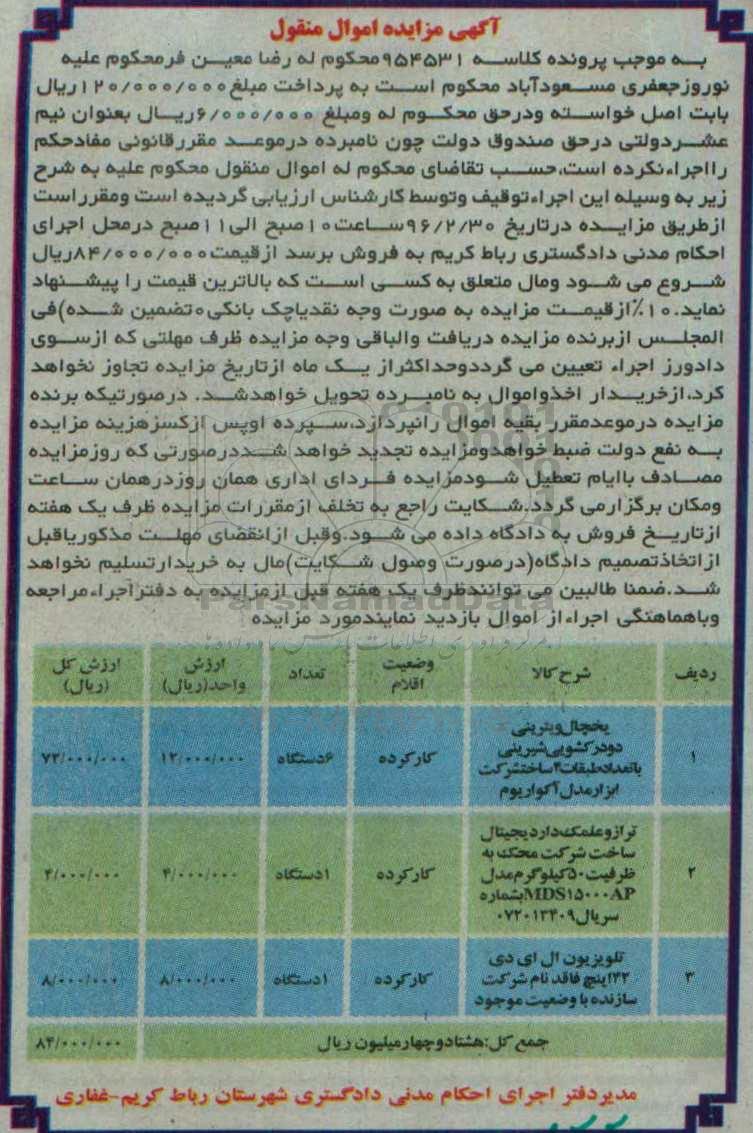 آگهی مزایده اموال منقول
به موجب پرونده کلاسه ۹۵۴۵۳۱محکوم له رضا معین فرمحکوم علیه
نوروزجعفری مسعودآباد محکوم است به پرداخت مبلغ۱۲۰/۰۰۰/۰۰۰ریال
بابت اصل خواسته ودرحق محکوم له ومبلغ ۶/۰۰۰/۰۰۰ریال بعنوان نیم
عشردولتی درحق صندوق دولت چون نامبرده درموعد مقررقانونی مفادحکم
رااجراءنکرده است،حسب تقاضای محکوم له اموال منقول محکوم علیه به شرح
زیر به وسیله این اجراءتوقیف وتوسط کارشناس ارزیابی گردیده است ومقرراست
ازطریق مزایده درتاریخ ۹۶/۲/۳۰ساعت۱۰صبح الی۱۱صبح درمحل اجرای
احکام مدنی دادگستری رباط کریم به فروش برسد ازقیمت۸۴/۰۰۰/۰۰۰ریال
شروع می شود ومال متعلق به کسی است که بالاترین قیمت را پیشنهاد
نماید.۱۰٪ازقیمت مزایده به صورت وجه نقدیاچک بانکی۰تضمین شده)فی
المجلس ازبرنده مزایده دریافت والباقی وجه مزایده ظرف مهلتی که ازسوی
دادورز اجراء تعیین می گرددوحداکثراز یک ماه ازتاریخ مزایده تجاوز نخواهد
کرد،ازخریدار اخذواموال به نامبرده تحویل خواهدشد. درصورتیکه برنده
مزایده درموعدمقرر بقیه اموال رانپردازد،سپرده اوپس ازکسرهزینه مزایده
به نفع دولت ضبط خواهدومزایده تجدید خواهد شددرصورتی که روزمزایده
مصادف باایام تعطیل شودمزایده فردای اداری همان روزدرهمان ساعت
ومکان برگزارمی گردد.شکایت راجع به تخلف ازمقررات مزایده ظرف یک هفته
ازتاریخ فروش به دادگاه داده می شود.وقبل ازانقضای مهلت مذکوریاقبل
ازاتخاذتصمیم دادگاه(درصورت وصول شکایت)مال به خریدارتسلیم نخواهد
شد.ضمنا طالبین می توانندظرف یک هفته قبل ازمزایده به دفتراجراءمراجعه
وباهماهنگی اجراءاز اموال بازدید نمایندمورد مزایده
ParsNamadData
ردیف شرح کالا وضعیت اقلام تعداد ارزش واحد(ریال) ارزش کل (ریال)
۱ یخچال‌ویترینی
دودرکشویی‌شیرینی
باتعدادطبقات۴ساخت‌شرکت
ابزارمدل‌آکواریوم
کارکرده ۶دستگاه ۱۲/۰۰۰/۰۰۰ ۷۲/۰۰۰/۰۰۰
۲ ترازوعلمک‌داردیجیتال
ساخت شرکت محک به
ظرفیت۵۰کیلوگرم‌مدل
MDS۱۵۰۰۰APبشماره
سریال۰۷۲۰۱۳۴۰۹
کارکرده ۱دستگاه ۴/۰۰۰/۰۰۰ ۴/۰۰۰/۰۰۰
۳ تلویزیون ال ای دی
۴۲اینچ فاقد نام شرکت
سازنده با وضعیت موجود
کارکرده ۱دستگاه ۸/۰۰۰/۰۰۰ ۸/۰۰۰/۰۰۰
جمع کل:هشتادوچهارمیلیون ریال ۸۴/۰۰۰/۰۰۰
مدیردفتر اجرای احکام مدنی دادگستری شهرستان رباط کریم-غفاری